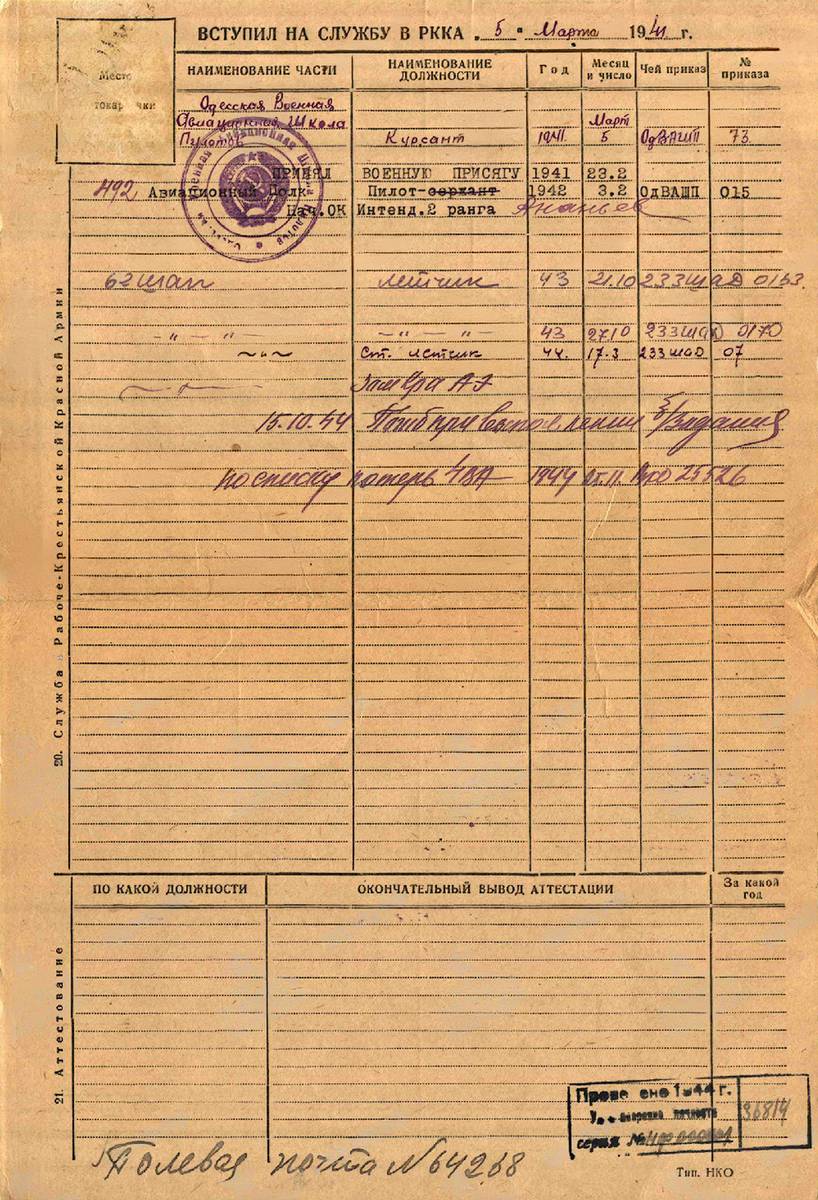 ВСТУПИЛ НА СЛУЖБУ В РККА „5" Марта 1941 г.
Место
карточки
НАИМЕНОВАНИЕ ЧАСТИ НАИМЕНОВАНИЕ ДОЛЖНОСТИ Год Месяц и число Чей приказ № приказа
Одесская Военная
Авиационная Школа Март
Пилотов Курсант 1941. 5 ОдВАШП 73.
ПРИНЯЛ ВОЕННУЮ ПРИСЯГУ 1941 23.2
492 Авиационный Полк Пилот-сержант 1942 3.2 ОдВАШП 015
Нач.ОК Интенд.2 ранга Ананьев
62 шап летчик 43 21.10 233 шад 0153.
—„— —„— —„— —„— 43 27.10 233 шад 0170
~„~ Ст. летчик 44. 17.3 233 шад 07
Зам к-ра АЭ
15.10.44 Погиб при выполнении б/задания
по списку потерь 4ВА 1944 25526
20. Служба в Рабоче-Крестьянской Красной Армии
ПО КАКОЙ ДОЛЖНОСТИ ОКОНЧАТЕЛЬНЫЙ ВЫВОД АТТЕСТАЦИИ За какой год
21. Аттестование
1944 г.
личности
серия № 36814
Полевая почта N 64268
Тип. НКО